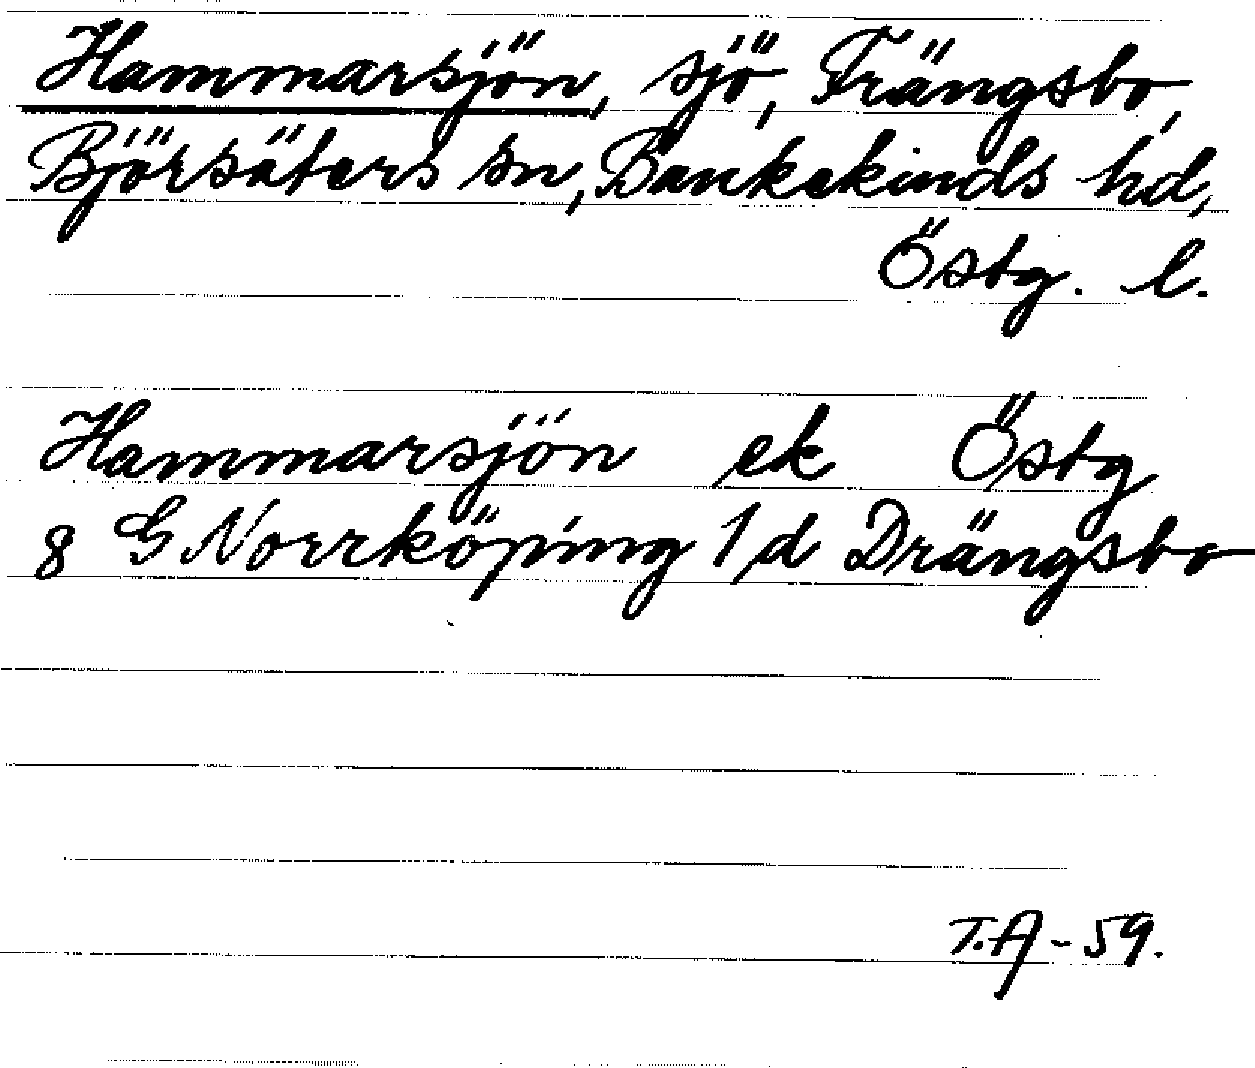 Hammarsjön, sjö, Frängsbo,
Björsäters sn, Bankekinds hd,
Östg. l.
Hammarsjön ek Östg
8 G Norrköping 1/d Drängsbo
T.A-59.